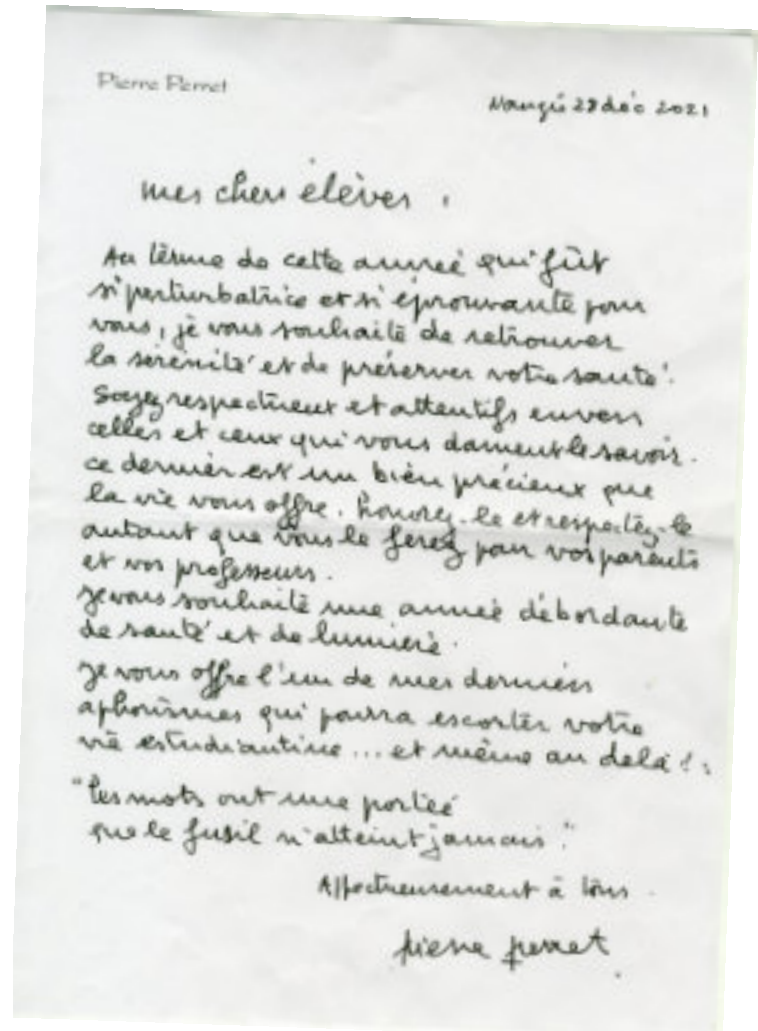 Pierre Perret
Nangis 28 déc 2021
mes chers élèves,
Au terme de cette année qui fût
si perturbatrice et si éprouvante pour
vous, je vous souhaite de retrouver
la sérénité et de préserver votre santé.
Soyez respectueux et attentifs envers
celles et ceux qui vous donnent le savoir.
ce dernier est un bien précieux que
la vie vous offre. honorez-le et respectez-le
autant que vous le ferez pour vos parents
et vos professeurs.
je vous souhaite une année débordante
de santé et de lumière.
je vous offre l'un de mes derniers
aphorismes qui pourra escorter votre
vie estudiantine... et même au delà ! :
"les mots ont une portée
que le fusil n'atteint jamais."
Affectueusement à tous.
pierre perret